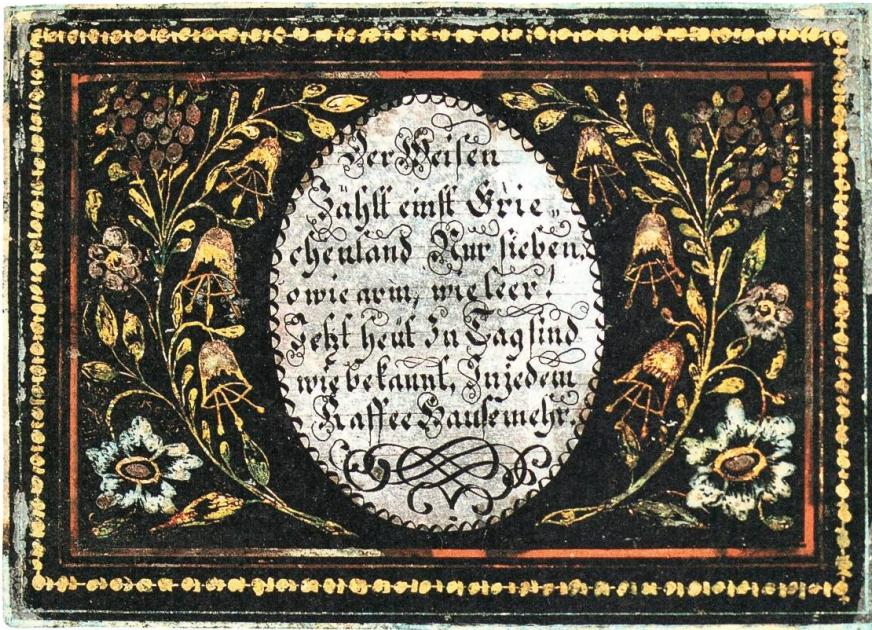 Der Weisen
Zählt einst Grie„
chenland Nur sieben,
o wie arm, wie leer!
Jetzt heüt Zu Tag sind
wie bekannt, In jedem
Kaffee Hause mehr.